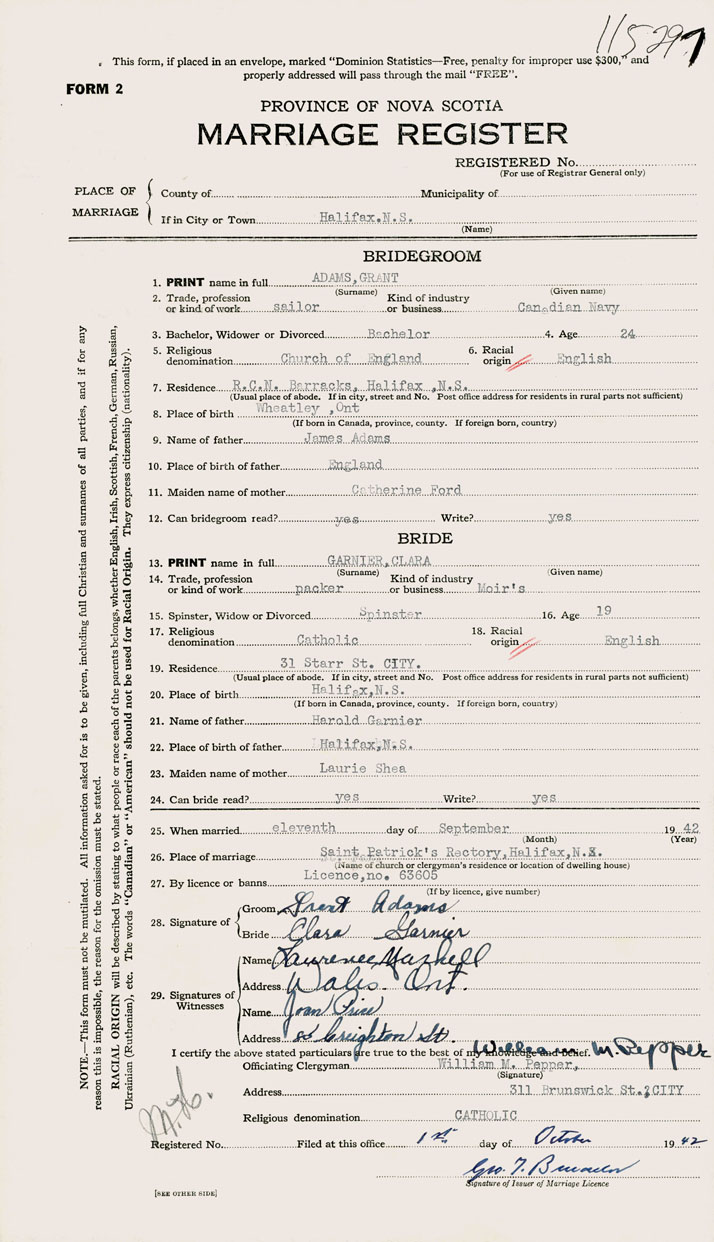 115297
. This form, if placed in an envelope, marked "Dominion Statistics—Free, penalty for improper use $300," and
properly addressed will pass through the mail "FREE".
FORM 2
PROVINCE OF NOVA SCOTIA
MARRIAGE REGISTER
REGISTERED No.
(For use of Registrar General only)
PLACE OF MARRIAGE
County of Municipality of
If in City or Town Halifax.N.S.
(Name)
BRIDEGROOM
1. PRINT name in full ADAMS,GRANT
(Surname) (Given name)
2. Trade, profession or kind of work sailor Kind of industry or business Canadian Navy
3. Bachelor, Widower or Divorced Bachelor 4. Age 24
5. Religious denomination Church of England 6. Racial origin English
7. Residence R.C.N. Barracks, Halifax ,N.S.
(Usual place of abode. If in city, street and No. Post office address for residents in rural parts not sufficient)
8. Place of birth Wheatley ,Ont
(If born in Canada, province, county. If foreign born, country)
9. Name of father James Adams
10. Place of birth of father England
11. Maiden name of mother Catherine Ford
12. Can bridegroom read? yes Write? yes
BRIDE
13. PRINT name in full GARNIER,CLARA
(Surname) (Given name)
14. Trade, profession or kind of work packer Kind of industry or business Moir's
15. Spinster, Widow or Divorced Spinster 16. Age 19
17. Religious denomination Catholic 18. Racial origin English
19. Residence 31 Starr St. CITY.
(Usual place of abode. If in city, street and No. Post office address for residents in rural parts not sufficient)
20. Place of birth Halifax,N.S.
(If born in Canada, province, county. If foreign born, country)
21. Name of father Harold Garnier
22. Place of birth of father Halifax,N.S.
23. Maiden name of mother Laurie Shea
24. Can bride read? yes Write? yes
25. When married eleventh day of September 19 42
(Month) (Year)
26. Place of marriage Saint Patrick's Rectory,Halifax,N.S.
(Name of church or clergyman's residence or location of dwelling house)
27. By licence or banns Licence,no. 63605
(If by licence, give number)
28. Signature of
Groom Grant Adams
Bride Clara Garnier
29. Signatures of Witnesses
Name Laurence Maskell
Address Ont.
Name Joan Price
Address Creighton St.
I certify the above stated particulars are true to the best of my knowledge and belief. William M. Pepper
Officiating Clergyman William M. Pepper,
(Signature)
Address 311 Brunswick St.,CITY
Religious denomination CATHOLIC
Registered No. Filed at this office 1st day of October 19 42
Geo. T.
Signature of Issuer of Marriage Licence
[SEE OTHER SIDE]
NOTE.—This form must not be mutilated. All information asked for is to be given, including full Christian and surnames of all parties, and if for any
reason this is impossible, the reason for the omission must be stated.
RACIAL ORIGIN will be described by stating to what people or race each of the parents belongs, whether English, Irish, Scottish, French, German, Russian,
Ukrainian (Ruthenian), etc. The words "Canadian" or "American" should not be used for Racial Origin. They express citizenship (nationality).